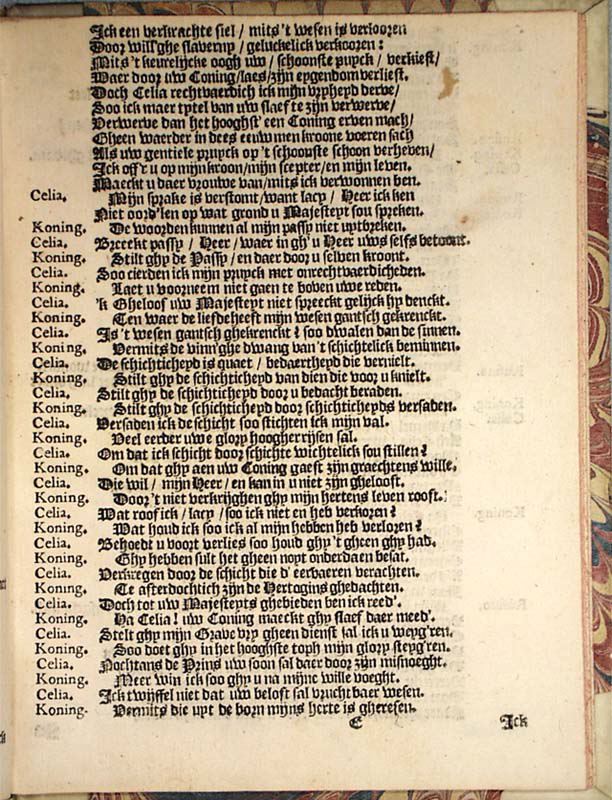 Ick een verkrachte siel / mits 't wesen is verlooren
Door will'ghe slaverny / geluckelick verkooren:
Mits 't keurelijcke oogh uw / schoonste puyck / verkiest/
Waer door uw Coning/laes/zijn eygendom verliest.
Doch Celia rechtvaerdich ick mijn vryheyd derve/
Soo ick maer tytel van uw slaef te zijn verwerve/
Verwerve dan het hooghst' een Coning erven mach/
Gheen waerder in dees eeuw men kroone voeren sach
Als uw gentiele pruyck op 't schoonste schoon verheven/
Ick off'r u op mijn kroon/mijn scepter/en mijn leven.
Maeckt u daer vrouwe van/mits ick verwonnen ben.
Celia. Mijn sprake is verstomt/want lacy / Heer ick ken
Niet oord'len op wat grond u Majesteyt sou spreken.
Koning. De woorden kunnen al mijn passy niet uytbreken.
Celia. Breeckt passy / Heer / waer in gh' u Heer uws selfs betoont.
Koning. Stilt ghy de Passy / en daer door u selven kroont.
Celia. Soo cierden ick mijn pruyck met onrechtvaerdicheden.
Koning. Laet u voorneem niet gaen te boven uwe reden.
Celia. 'k Gheloof uw Majesteyt niet spreeckt gelijck hy denckt.
Koning. Ten waer de liefde heeft mijn wesen gantsch gekrenckt.
Celia. Is 't wesen gantsch ghekrenckt? soo dwalen dan de sinnen.
Koning. Vermits de vinn'ghe dwang van 't schichtelick beminnen.
Celia. De schichticheyd is quaet / bedaertheyd die vernielt.
Koning. Stilt ghy de schichticheyd van dien die voor u knielt.
Celia. Stilt ghy de schichticheyd door u bedacht beraden.
Koning. Stilt ghy de schichticheyd door schichticheyds versaden.
Celia. Versaden ick de schicht soo stichten ick mijn val.
Koning. Veel eerder uwe glory hoogher rijsen sal.
Celia. Om dat ick schicht door schichte wichtelick sou stillen?
Koning. Om dat ghy aen uw Coning gaeft zijn graechtens wille.
Celia. Die wil / mijn Heer / en kan in u niet zijn ghelooft.
Koning. Door 't niet verkrijghen ghy mijn hertens leven rooft.
Celia. Wat roof ick / lacy / soo ick niet en heb verkoren?
Koning. Wat houd ick soo ick al mijn hebben heb verloren?
Celia. Behoedt u voort verlies soo houd ghy 't gheen ghy had.
Koning. Ghy hebben sult het gheen noyt onderdaen besat.
Celia. Verkregen door de schicht die d' eerbaeren verachten.
Koning. Te afterdochtich zijn de Hertogins ghedachten.
Celia. Doch tot uw Majesteyts ghebieden ben ick reed'.
Koning. Ha Celia! uw Coning maeckt ghy slaef daer meed'.
Celia. Stelt ghy mijn Grave vry gheen dienst sal ick u weyg'ren.
Koning. Soo doet ghy in het hooghste toph mijn glory steyg'ren.
Celia. Nochtans de Prins uw soon sal daer door zijn misnoeght.
Koning. Meer win ick soo ghy u na mijne wille voeght.
Celia. Ick twyffel niet dat uw beloft sal vrucht baer wesen.
Koning. Vermits die uyt de born mijns herte is gheresen.
E Ick